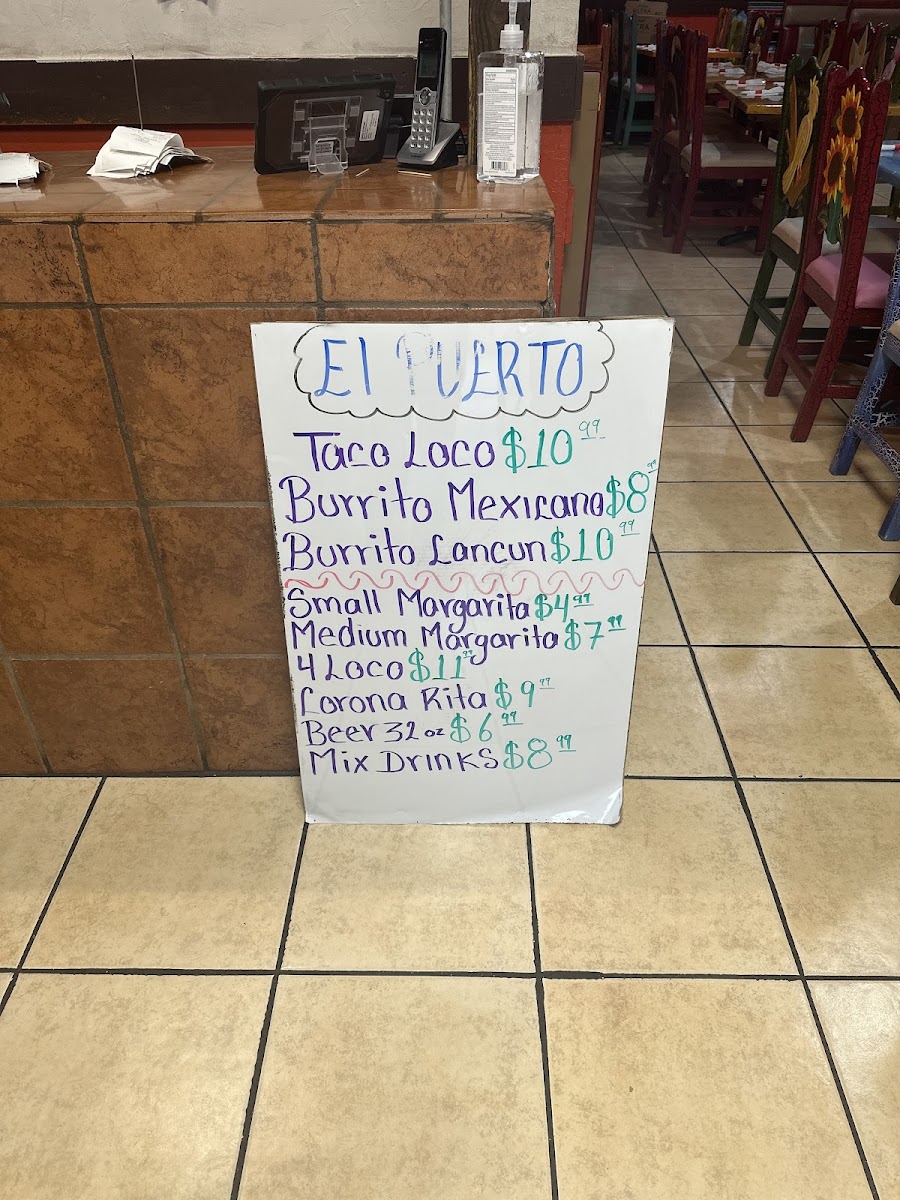 El PUERTO
Taco Loco $10.99
Burrito Mexicano $8.99
Burrito Cancun $10.99
Small Margarita $4.99
Medium Margarita $7.99
4 Loco $11.99
Corona Rita $9.99
Beer 32 oz $6.99
Mix Drinks $8.99